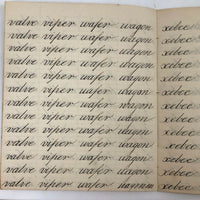 valve viper wafer wagon xebec
valve viper wafer wagon xebec
valve viper wafer wagon xebec
valve viper wafer wagon xebec
valve viper wafer wagon xebec
valve viper wafer wagon xebec
valve viper wafer wagon xebec
valve viper wafer wagon xebec
valve viper wafer wagon xebec
valve viper wafer wagon xebec
valve viper wafer wagon xebec
valve viper wafer wagon xebec
valve viper wafer xebec